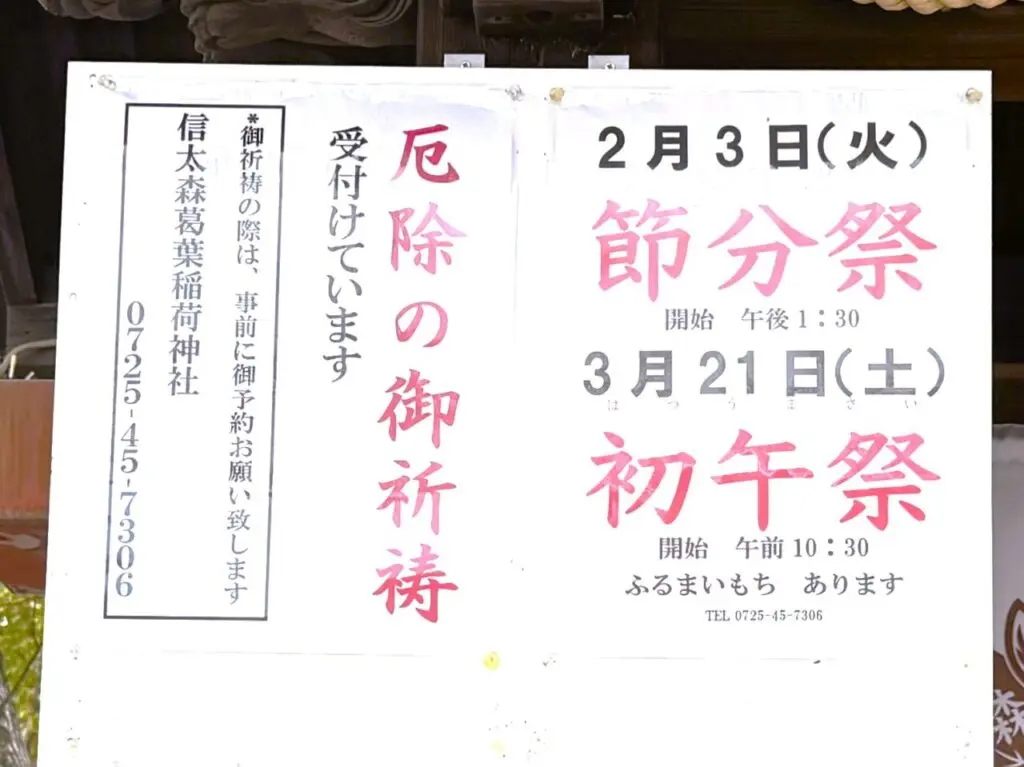 2月3日(火)
節分祭
開始 午後1:30
3月21日(土)
はつうまさい
初午祭
開始 午前10:30
ふるまいもち あります
TEL 0725-45-7306
厄除の御祈祷
受付けています
*御祈祷の際は、事前に御予約お願い致します
信太森葛葉稲荷神社
0725-45-7306
森